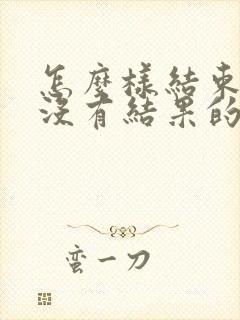 怎麼樣結束
沒有結果的
蛮一刀